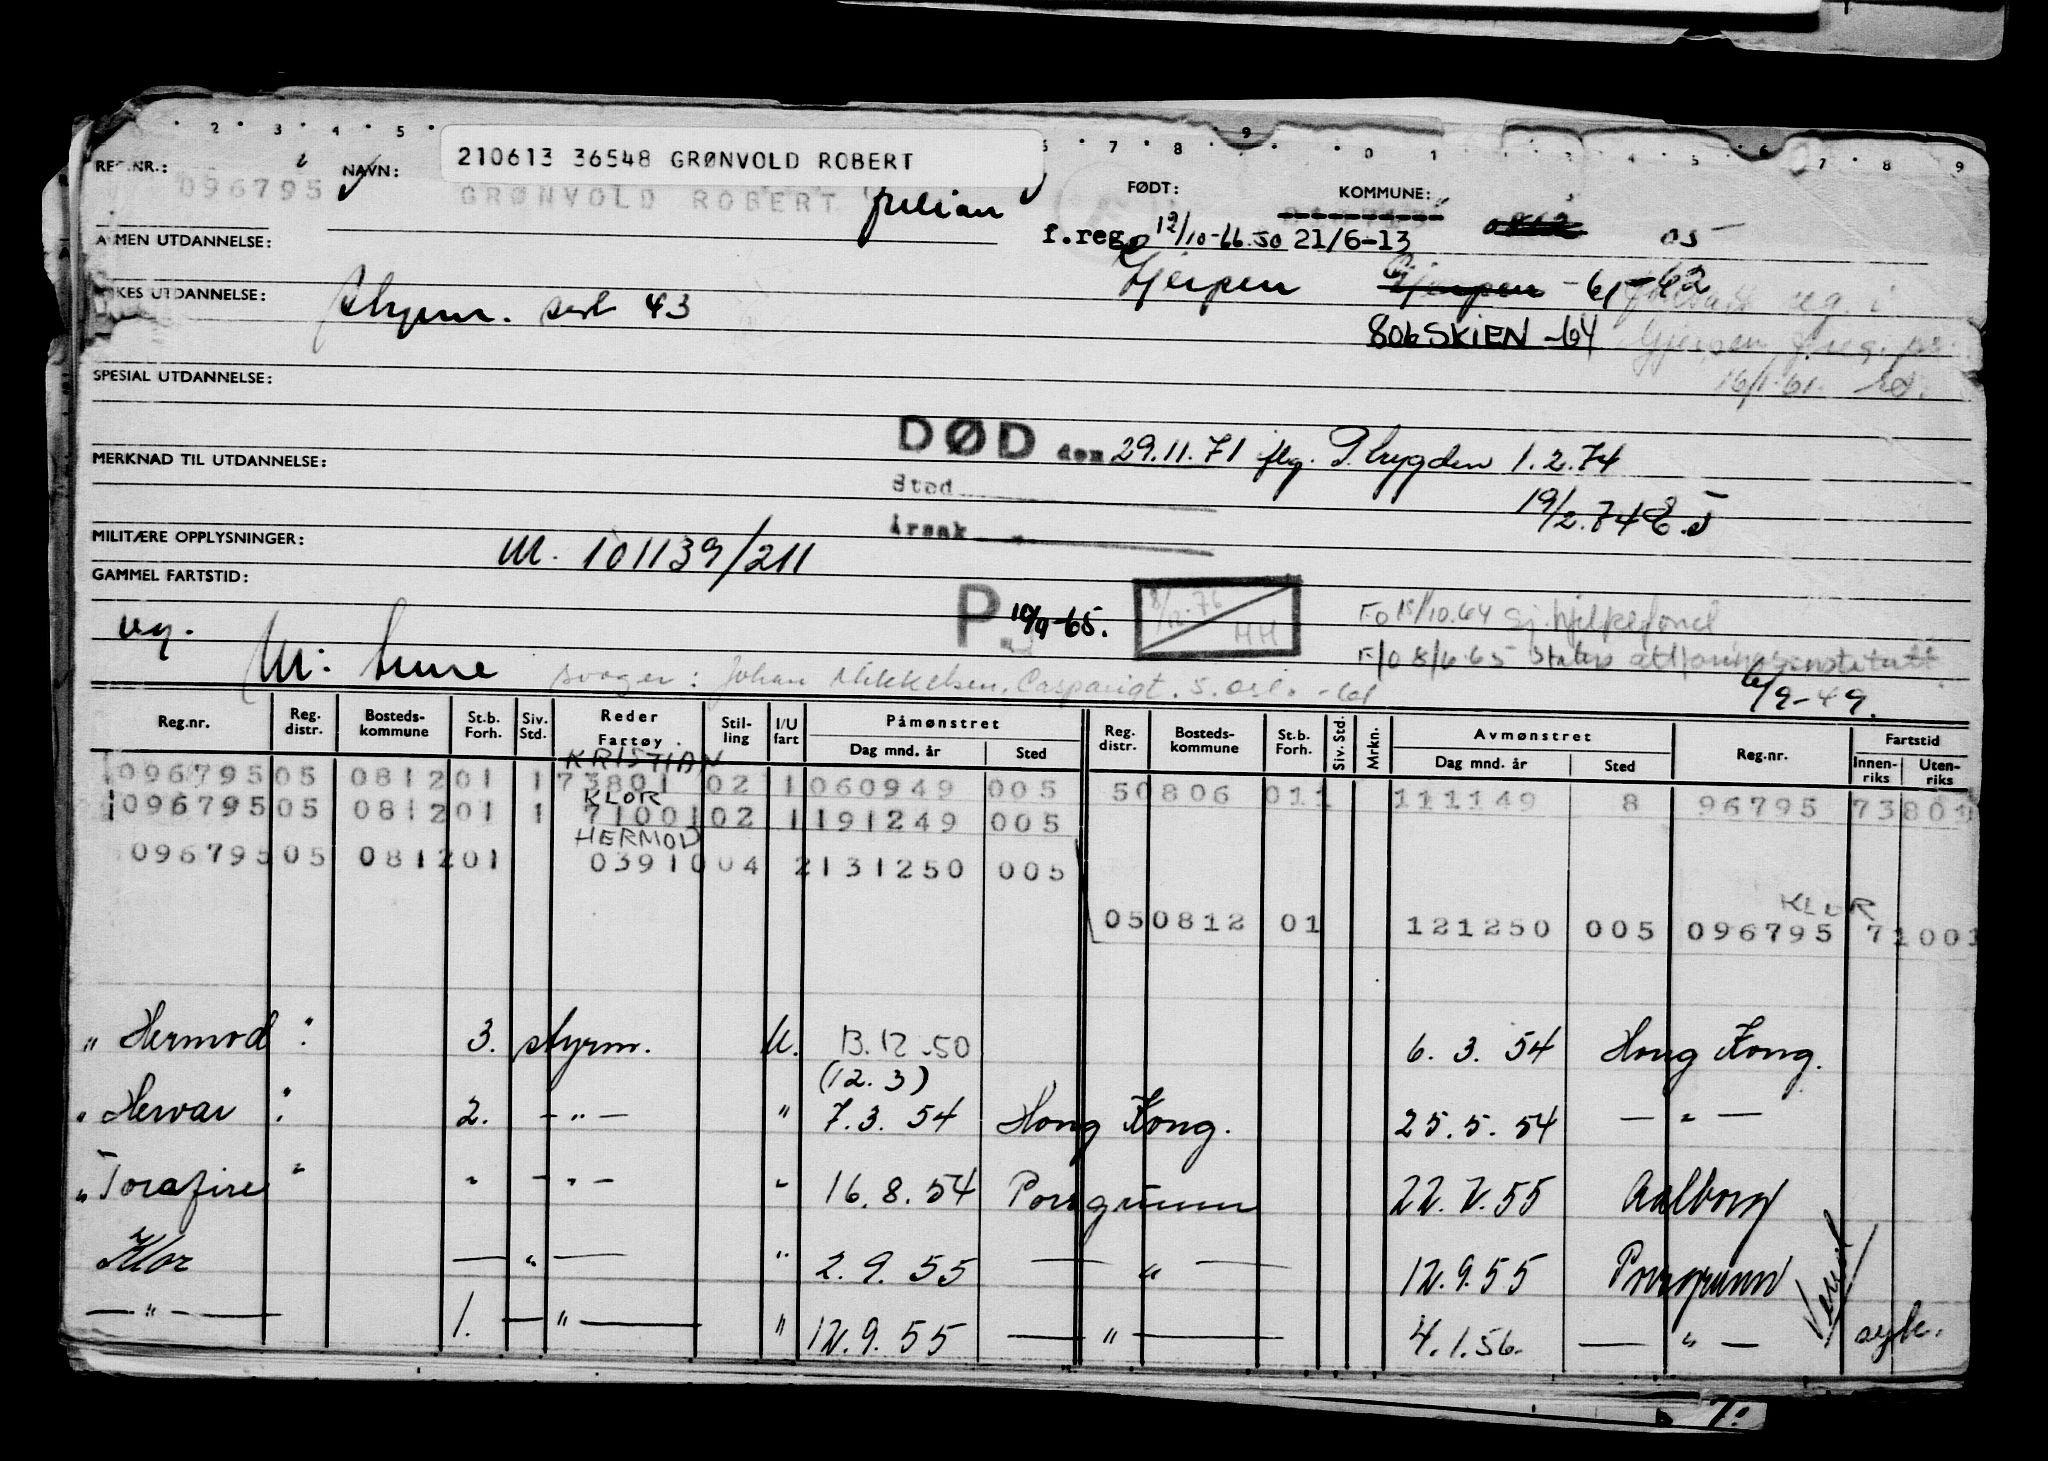 2 3 4 5 7 8 9 0 1 3 4 5 6 7 8 9
REG.NR.: NAVN: 210613 36548 GRØNVOLD ROBERT
096795 GRØNVOLD ROBERT Julian FØDT: KOMMUNE:
f.reg. 12/10-66.50 21/6-13 05
ALMEN UTDANNELSE:
Gjerpen Gjerpen -61-62
YRKES UTDANNELSE: Styrm. sert 43 reg. i
806 SKIEN -64 Gjerpen f.reg. pr.
SPESIAL UTDANNELSE: 16/1.61.
DØD den 29.11.71 flg. P. trygden 1.2.74
MERKNAD TIL UTDANNELSE:
Sted 19/2.74 E.J
Årsak
MILITÆRE OPPLYSNINGER: M. 101139/211
GAMMEL FARTSTID:
P. 10/9-65. 8/12.76 HH Fo 15/10.64 Sj.hjelpefond
ug. F/O 8/6.65 Statens attføringsinstitutt
M: svoger: Johan Mikkelsen, Casparigt. 5. Oslo -61 6/9-49.
Reg.nr. Reg. distr. Bosteds- kommune St.b. Forh. Siv. Std. Reder Fartøy Stil- ling I/U fart Påmønstret Dag mnd. år Sted Reg. distr. Bosteds- kommune St.b. Forh. Siv. Std. Mrkn. Avmønstret Dag mnd. år Sted Reg.nr. Fartstid Innen- riks Uten- riks
KRISTIAN
096795 05 0812 01 1 73801 02 1 060949 005 50806 011 111149 8 96795 73801
KLOR
096795 05 0812 01 1 71001 02 1 191249 005
HERMOD
096795 05 0812 01 03910 04 2 131250 005
KLOR
050812 01 121250 005 096795 71001
" Hermod " 3. styrm. U. 13.12.50 6.3.54 Hong Kong.
(12.3)
" Hervar " 2. - " - " 7.3.54 Hong Kong. 25.5.54 — " —
" Torafire " " - " - " 16.8.54 Porsgrunn 22.7.55 Aalborg
Klor — " — " 2.9.55 — " — 12.9.55 Porsgrunn
— " — 1. — " — " 12.9.55 — " — 4.1.56. — " — syk.
7.